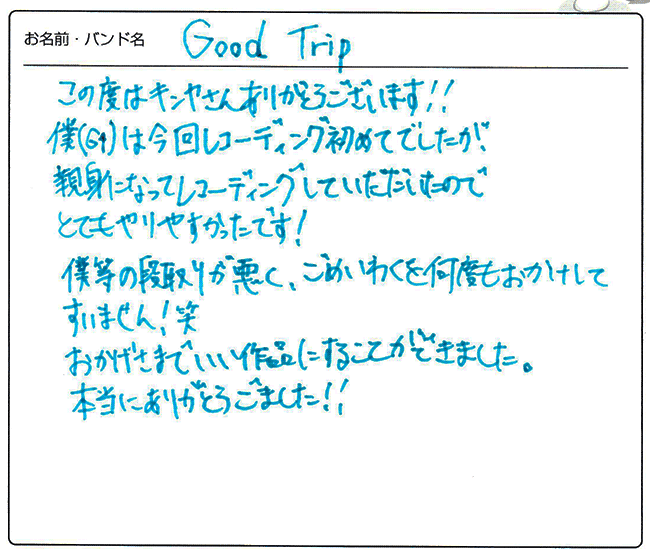 お名前・バンド名 Good Trip
この度はキンヤさんありがとうございます!!
僕(Gt)は今回レコーディング初めてでしたが、
親身になってレコーディングしていただいたので
とてもやりやすかったです!
僕等の段取りが悪く、ごめいわくを何度もおかけして
すいません!笑
おかげさまでいい作品にすることができました。
本当にありがとうごました!!